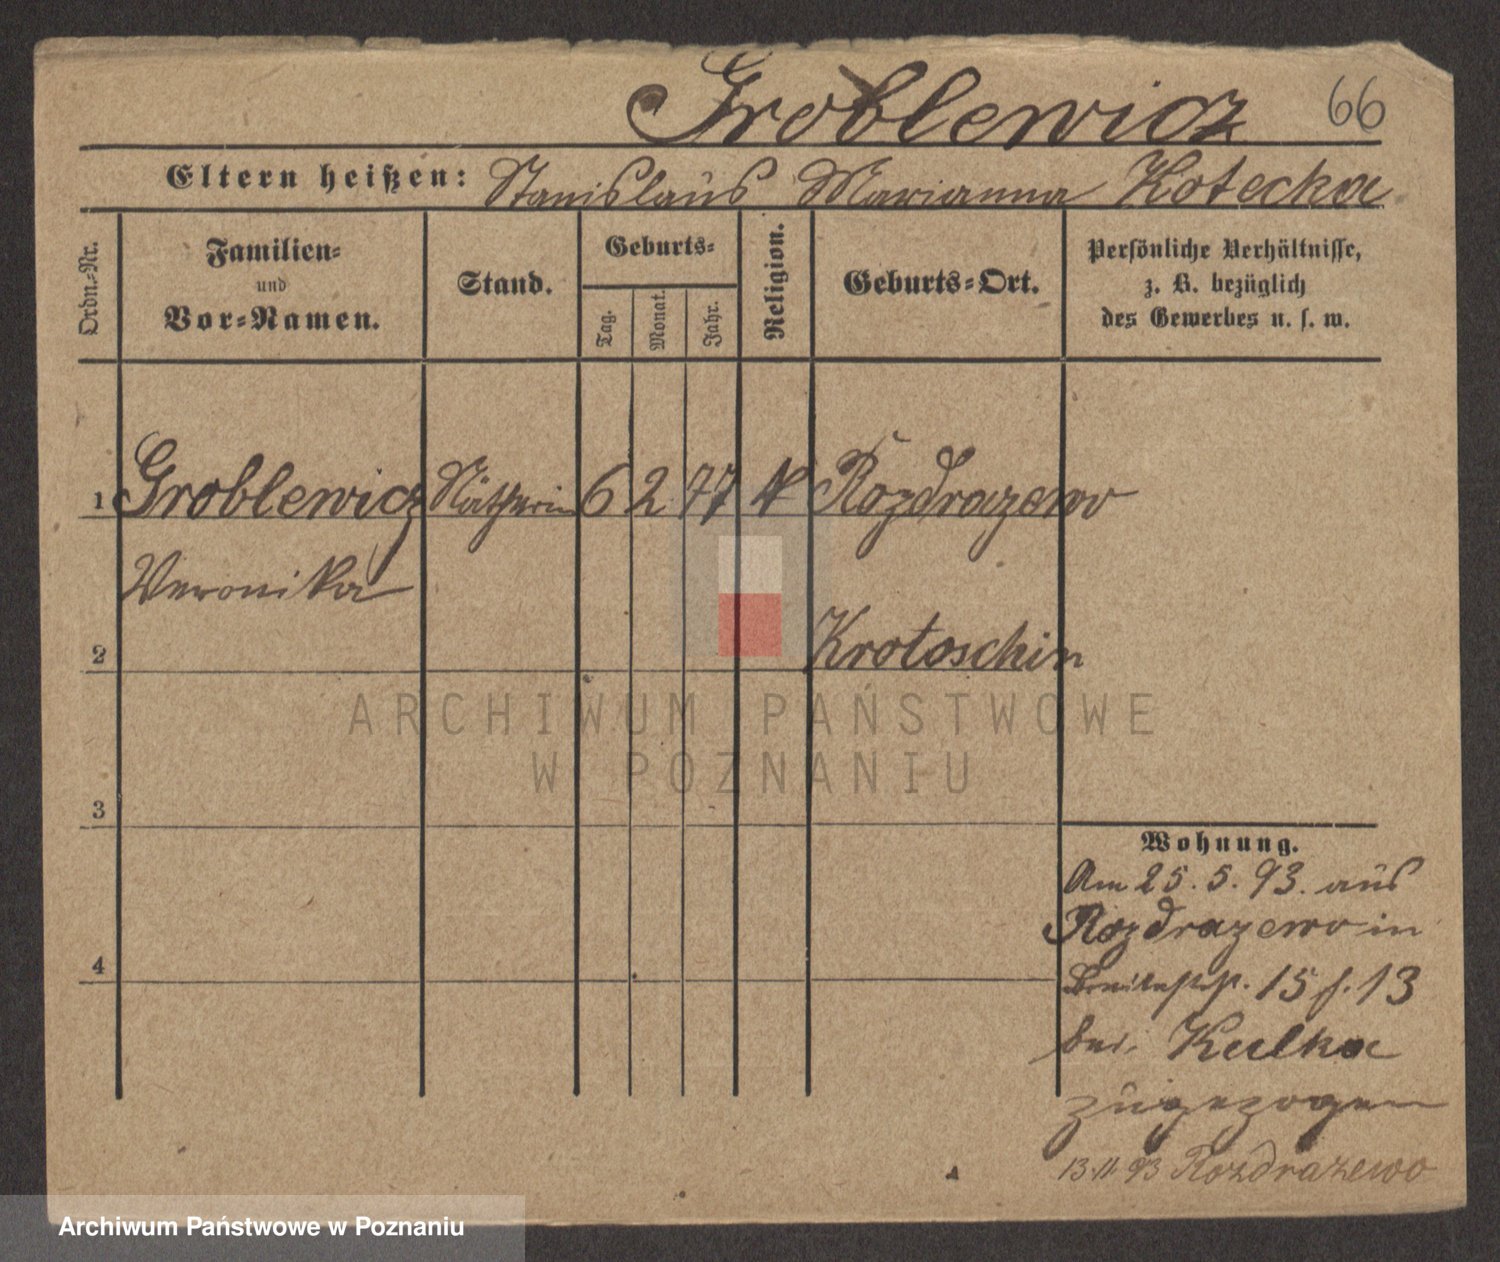 Groblewicz 66
Eltern heißen: Stanislaus Marianna Kotecka
Ordn.-Nr.
Familien-
und
Vor-Namen.
Stand.
Geburts-
Tag.
Monat.
Jahr.
Religion.
Geburts-Ort.
Persönliche Verhältnisse,
z. B. bezüglich
des Gewerbes u. s. w.
1 Groblewicz Nätherin 6 2 77 K Rozdrazewo
Veronika
2 Krotoschin
3
4
Wohnung.
Am 25. 5. 93. aus
Rozdrazewo in
Breitestr. 15 f. 13
bei Kulka
zugezogen
13.11.93 Rozdrazewo
ARCHIWUM PAŃSTWOWE
W POZNANIU
Archiwum Państwowe w Poznaniu